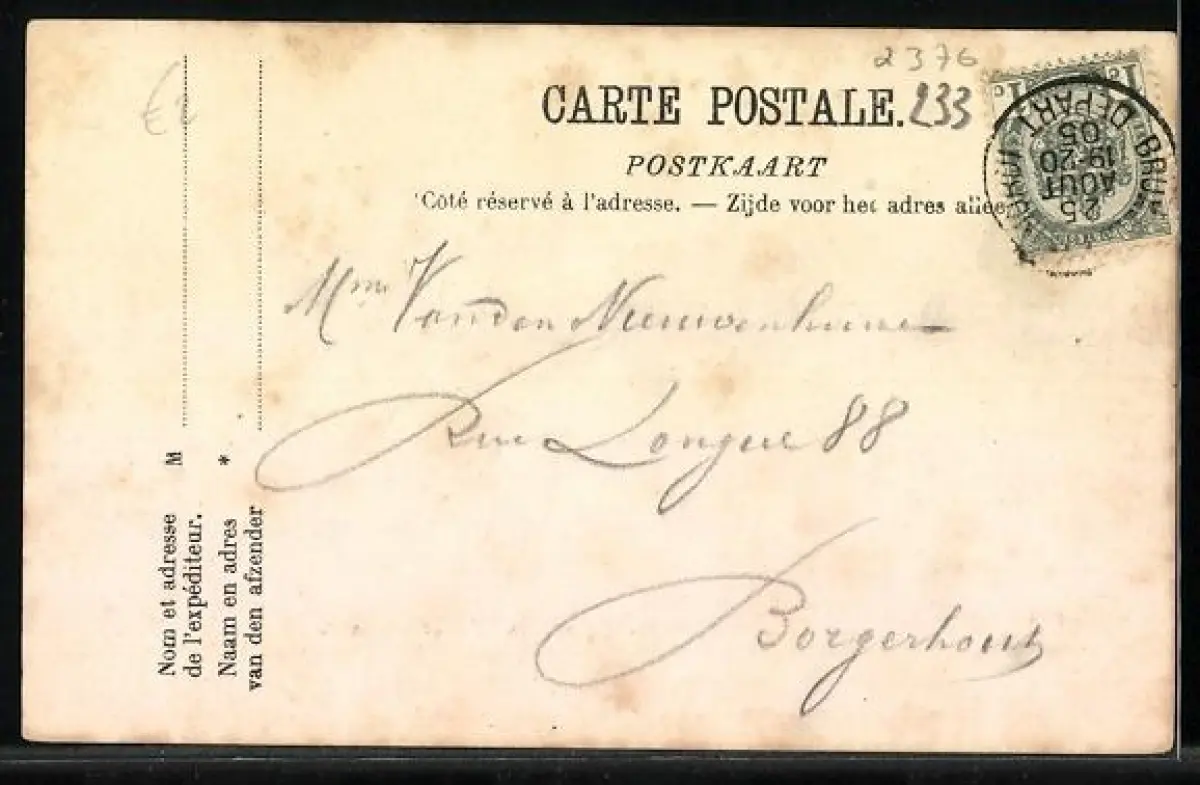 2376
CARTE POSTALE. 233
POSTKAART
Côté réservé à l'adresse. — Zijde voor het adres allee
1c 1c
DEPART
25
AOUT
19-20
05
Mme Vanden Nieuwenhuise
Rue Longue 88
Borgerhout
Nom et adresse M
de l'expéditeur.
Naam en adres *
van den afzender